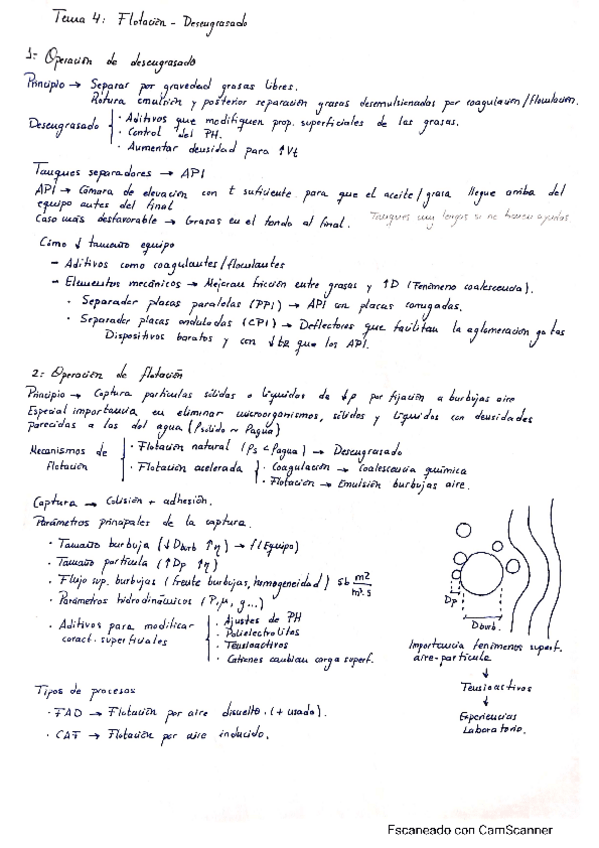 Tema 4: Flotación - Desengrasado
1: Operación de desengrasado
Principio → Separar por gravedad grasas libres.
Rotura emulsión y posterior separación grasas desemulsionadas por coagulación/floculación.
Desengrasado
· Aditivos que modifiquen prop. superficiales de las grasas.
· Control del PH.
· Aumentar densidad para ↑Vt
Tanques separadores → API
API → Cámara de elevación con t suficiente para que el aceite/grasa llegue arriba del
equipo antes del final
Caso más desfavorable → Grasas en el fondo al final. Tanques muy largos si no tienen ayudas
Cómo ↓ tamaño equipo
- Aditivos como coagulantes/floculantes
- Elementos mecánicos → Mejoran fricción entre grasas y ↑D (Fenómeno coalescencia).
· Separador placas paralelas (PPI) → API con placas corrugadas.
· Separador placas onduladas (CPI) → Deflectores que facilitan la aglomeración gotas
Dispositivos baratos y con ↓tR que los API.
2: Operación de flotación
Principio → Captura partículas sólidas o líquidos de ↓ρ por fijación a burbujas aire
Especial importancia en eliminar microorganismos, sólidos y líquidos con densidades
parecidas a las del agua (ρsólido ~ ρagua)
Mecanismos de
flotación
· Flotación natural (ρs < ρagua) → Desengrasado
· Flotación acelerada
· Coagulación → Coalescencia química
· Flotación → Emulsión burbujas aire.
Captura → Colisión + adhesión.
Parámetros principales de la captura.
· Tamaño burbuja (↓Dburb ↑η) → f(Equipo)
· Tamaño partícula (↑Dp ↑η)
· Flujo sup. burbujas (frente burbujas, homogeneidad) Sb m2/m3·s
· Parámetros hidrodinámicos (ρ, μ, g...)
· Aditivos para modificar
caract. superficiales
· Ajustes de PH
· Polielectrolitos
· Tensioactivos
· Cationes cambian carga superf.
Dp
Dburb.
Importancia fenómenos superf.
aire-partícula
↓
Tensioactivos
↓
Experiencias
Laboratorio.
Tipos de procesos
· FAD → Flotación por aire disuelto. (+ usada).
· CAF → Flotación por aire inducido.
Escaneado con CamScanner